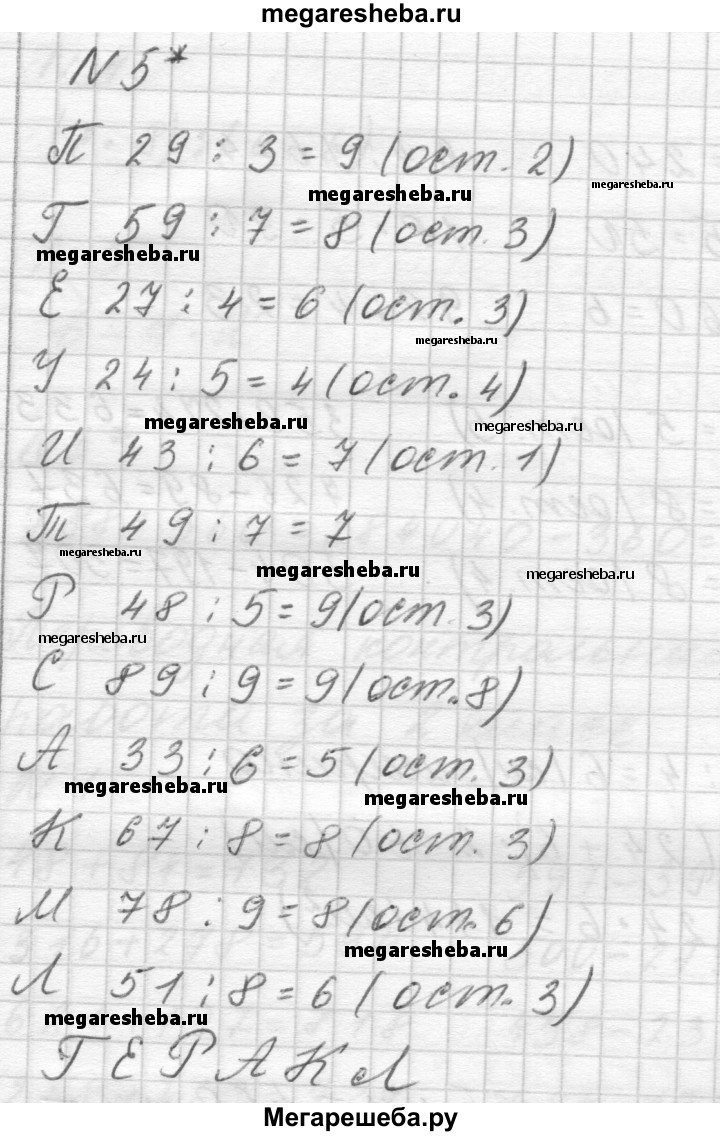 megaresheba.ru
N 5*
П 29 : 3 = 9 (ост. 2)
megaresheba.ru megaresheba.ru
Г 59 : 7 = 8 (ост. 3)
megaresheba.ru
Е 27 : 4 = 6 (ост. 3)
megaresheba.ru
У 24 : 5 = 4 (ост. 4)
megaresheba.ru megaresheba.ru
И 43 : 6 = 7 (ост. 1)
Т 49 : 7 = 7
megaresheba.ru megaresheba.ru megaresheba.ru
Р 48 : 5 = 9 (ост. 3)
megaresheba.ru
С 89 : 9 = 9 (ост. 8)
А 33 : 6 = 5 (ост. 3)
megaresheba.ru megaresheba.ru
К 67 : 8 = 8 (ост. 3)
М 78 : 9 = 8 (ост. 6)
megaresheba.ru
Л 51 : 8 = 6 (ост. 3)
megaresheba.ru
ГЕРАКЛ
Мегарешеба.ру